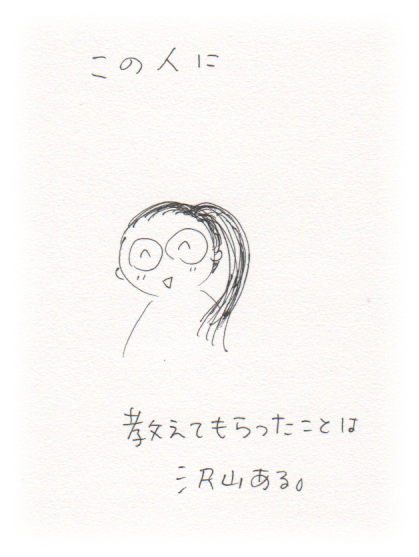 この人に
教えてもらったことは
沢山ある。